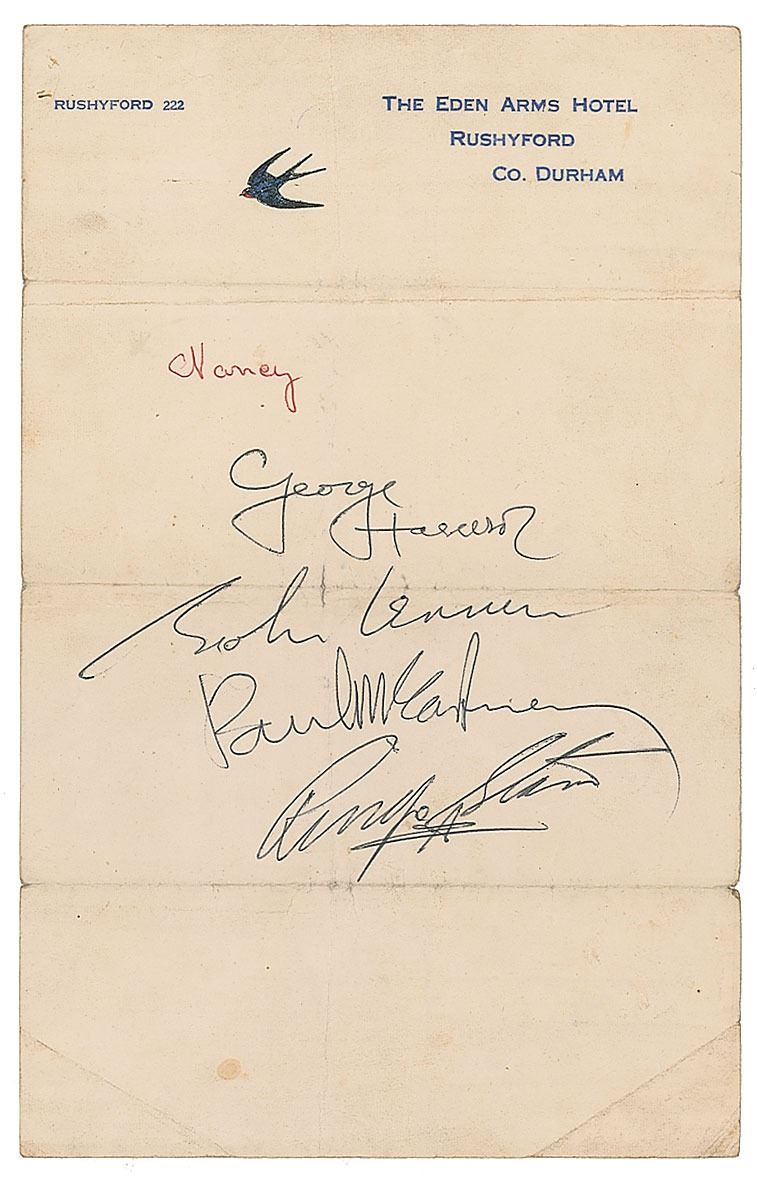 RUSHYFORD 222
THE EDEN ARMS HOTEL
RUSHYFORD
CO. DURHAM
Nancy
George
Harrison
John Lennon
Paul McCartney
Ringo Starr